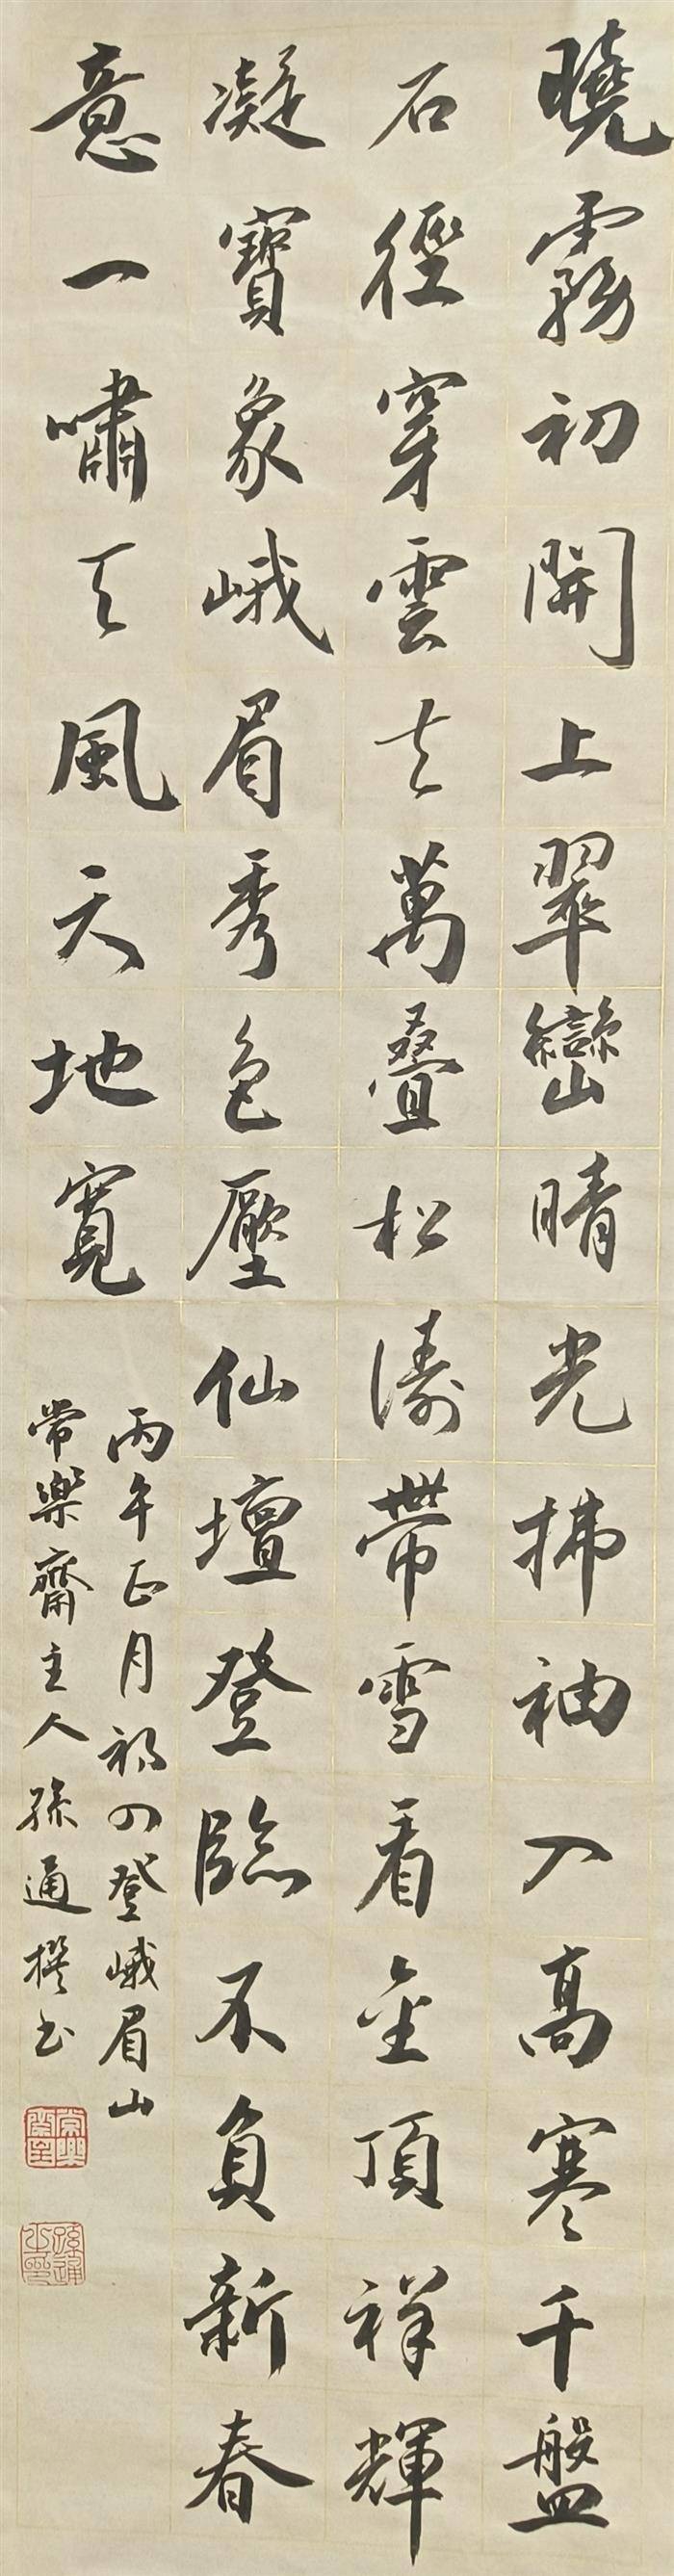 曉霧初開上翠巒晴光拂袖入高寒千盤
石徑穿雲去萬叠松濤帶雪看金頂祥輝
凝寶象峨眉秀色壓仙壇登臨不負新春
意一嘯天風天地寬
丙午正月初四登峨眉山
常樂齋主人孫通撰书
常樂齋主
孫通之印